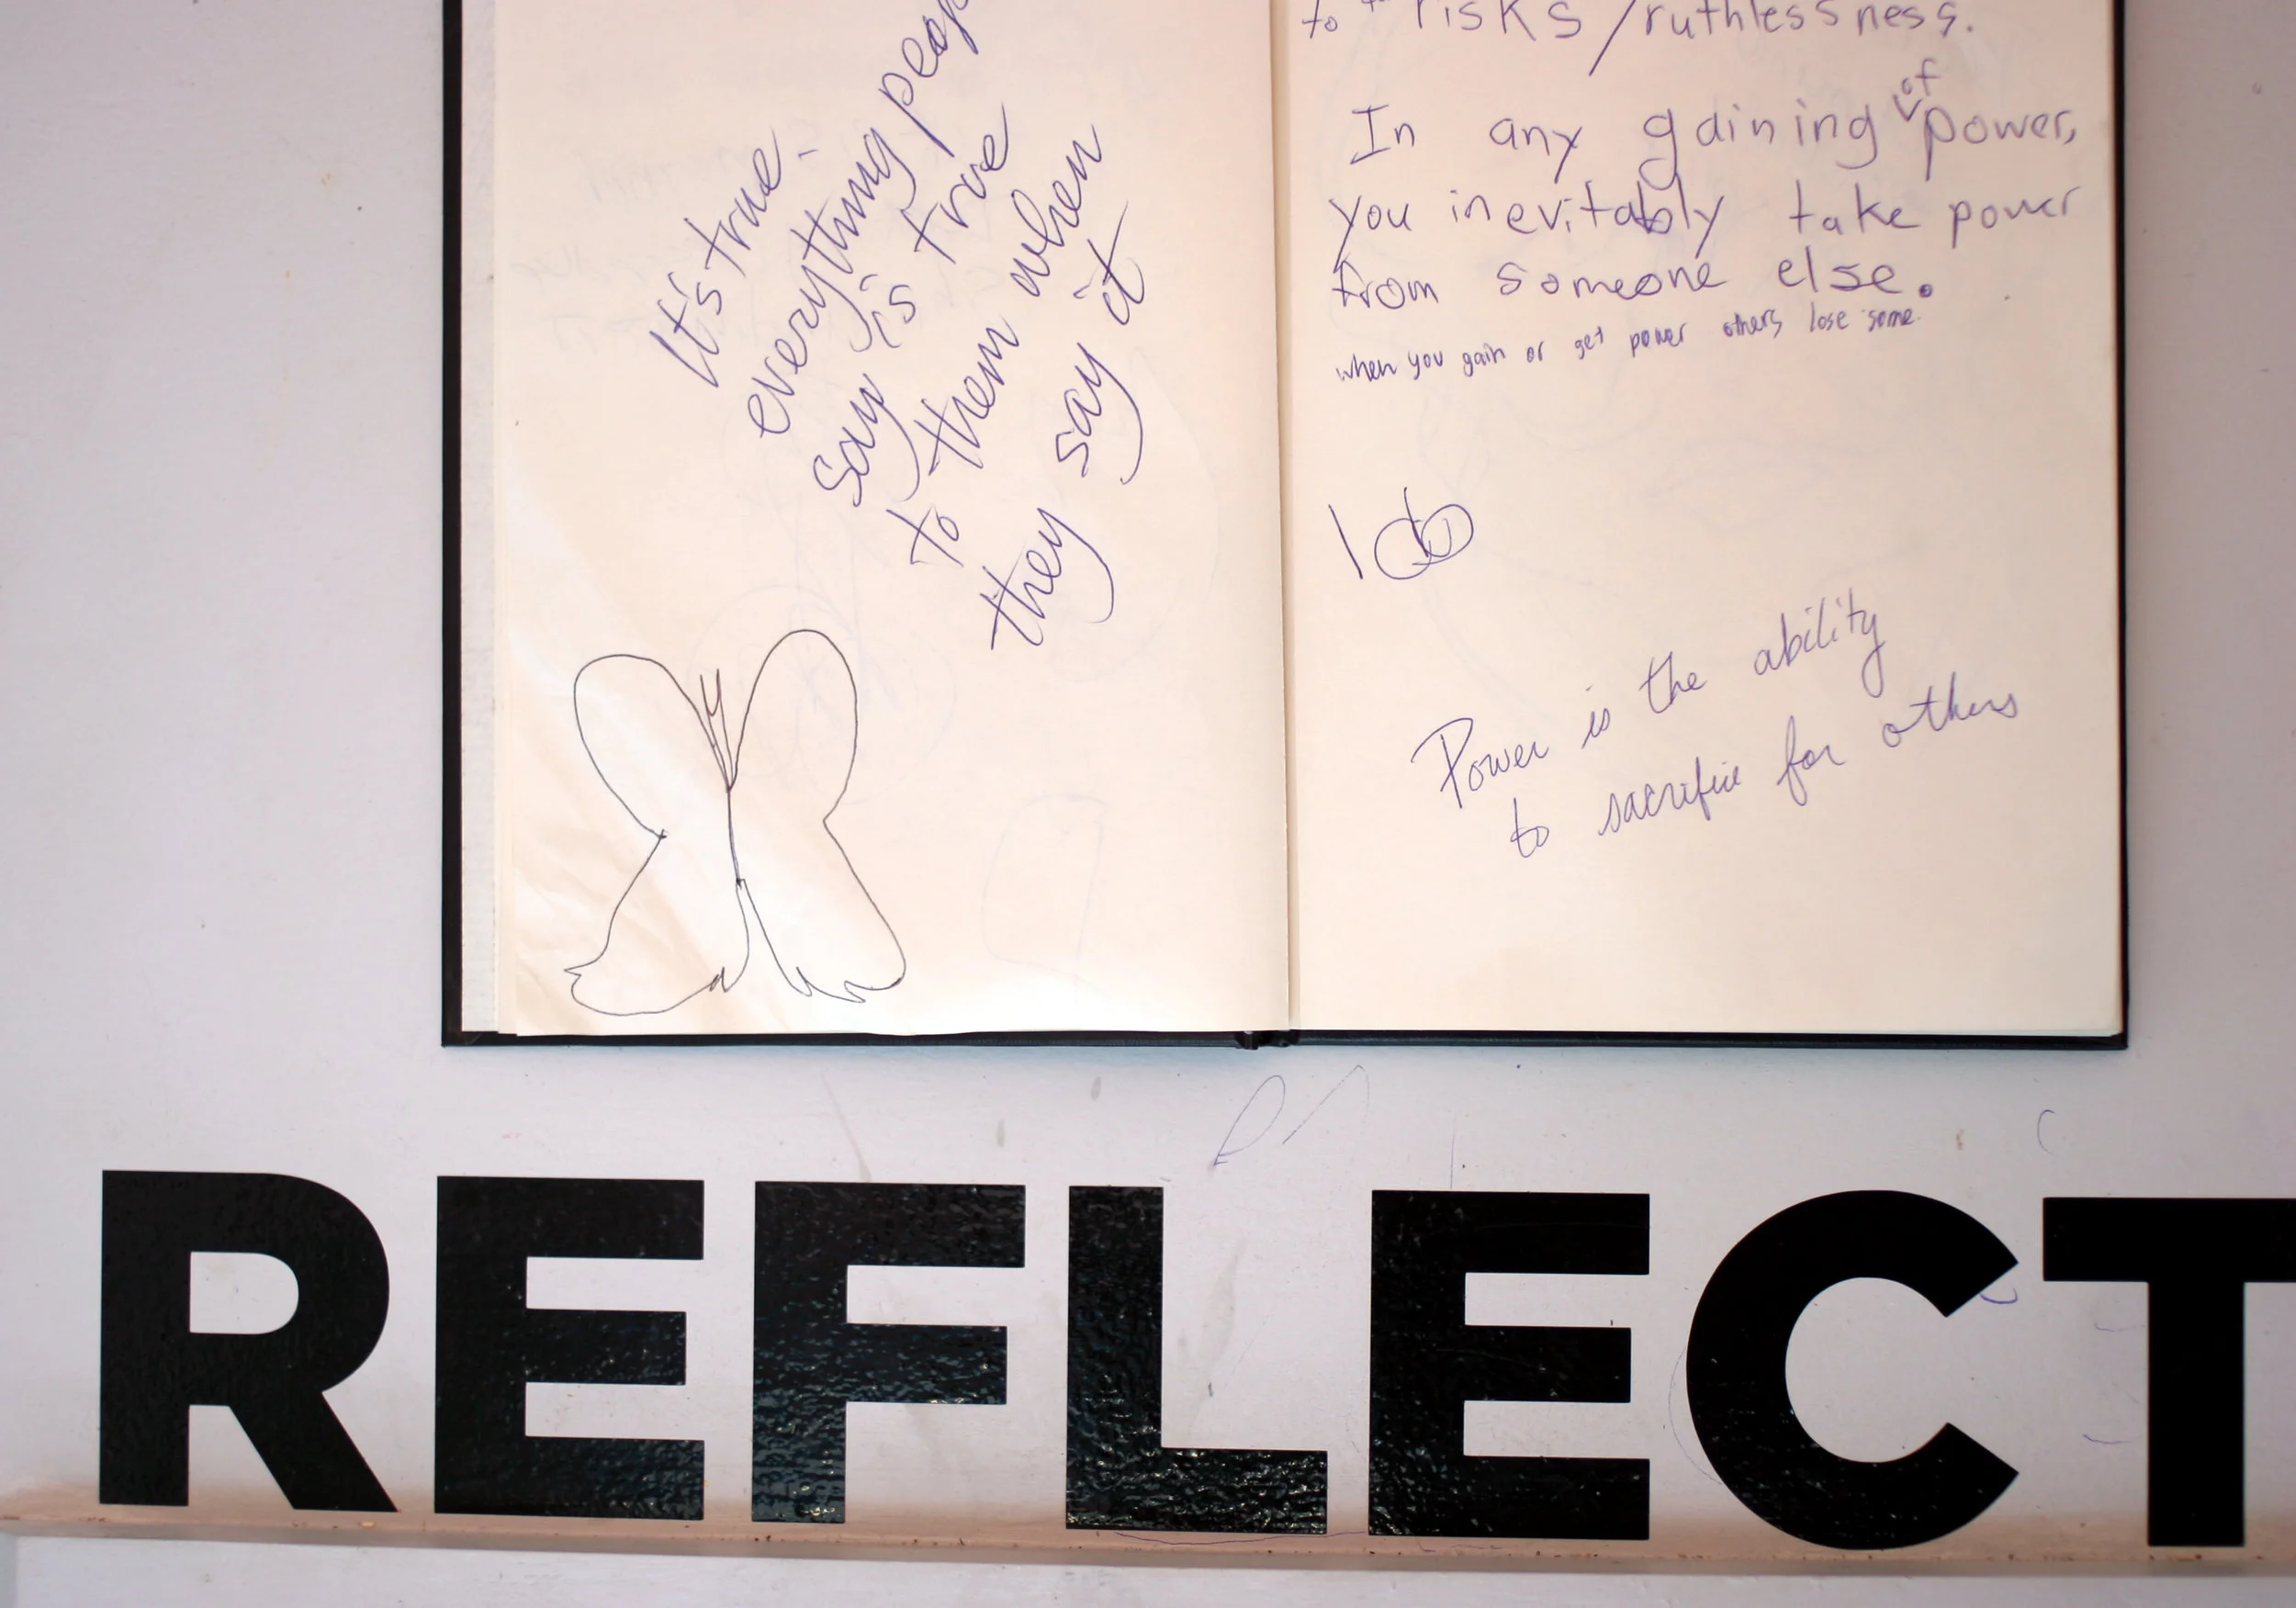 It's true -
everything
say is true
to them when
they say it
to risks/ruthlessness.
In any gaining of power,
you inevitably take power
from someone else.
when you gain or get power others lose some.
Power is the ability
to sacrifice for others
REFLECT